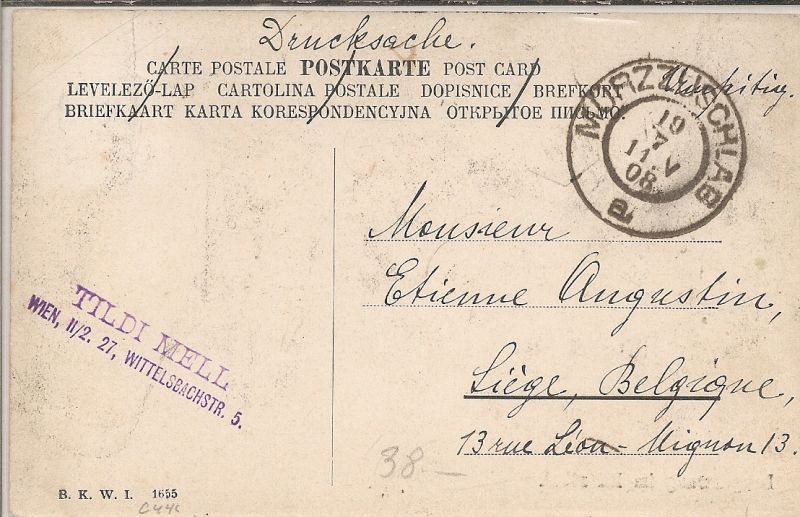 Drucksache.
CARTE POSTALE POSTKARTE POST CARD
LEVELEZŐ-LAP CARTOLINA POSTALE DOPISNICE BREFKORT
BRIEFKAART KARTA KORESPONDENCYJNA ОТКРЫТОЕ ПИСЬМО.
MÜRZZUSCHLAG
19
7
11.V
08
a
Monsieur
Etienne Angustin,
Liége, Belgique,
13 rue Léon-Mignon 13.
TILDI MELL
WIEN, II/2. 27, WITTELSBACHSTR. 5.
38.—
B. K. W. I. 1655